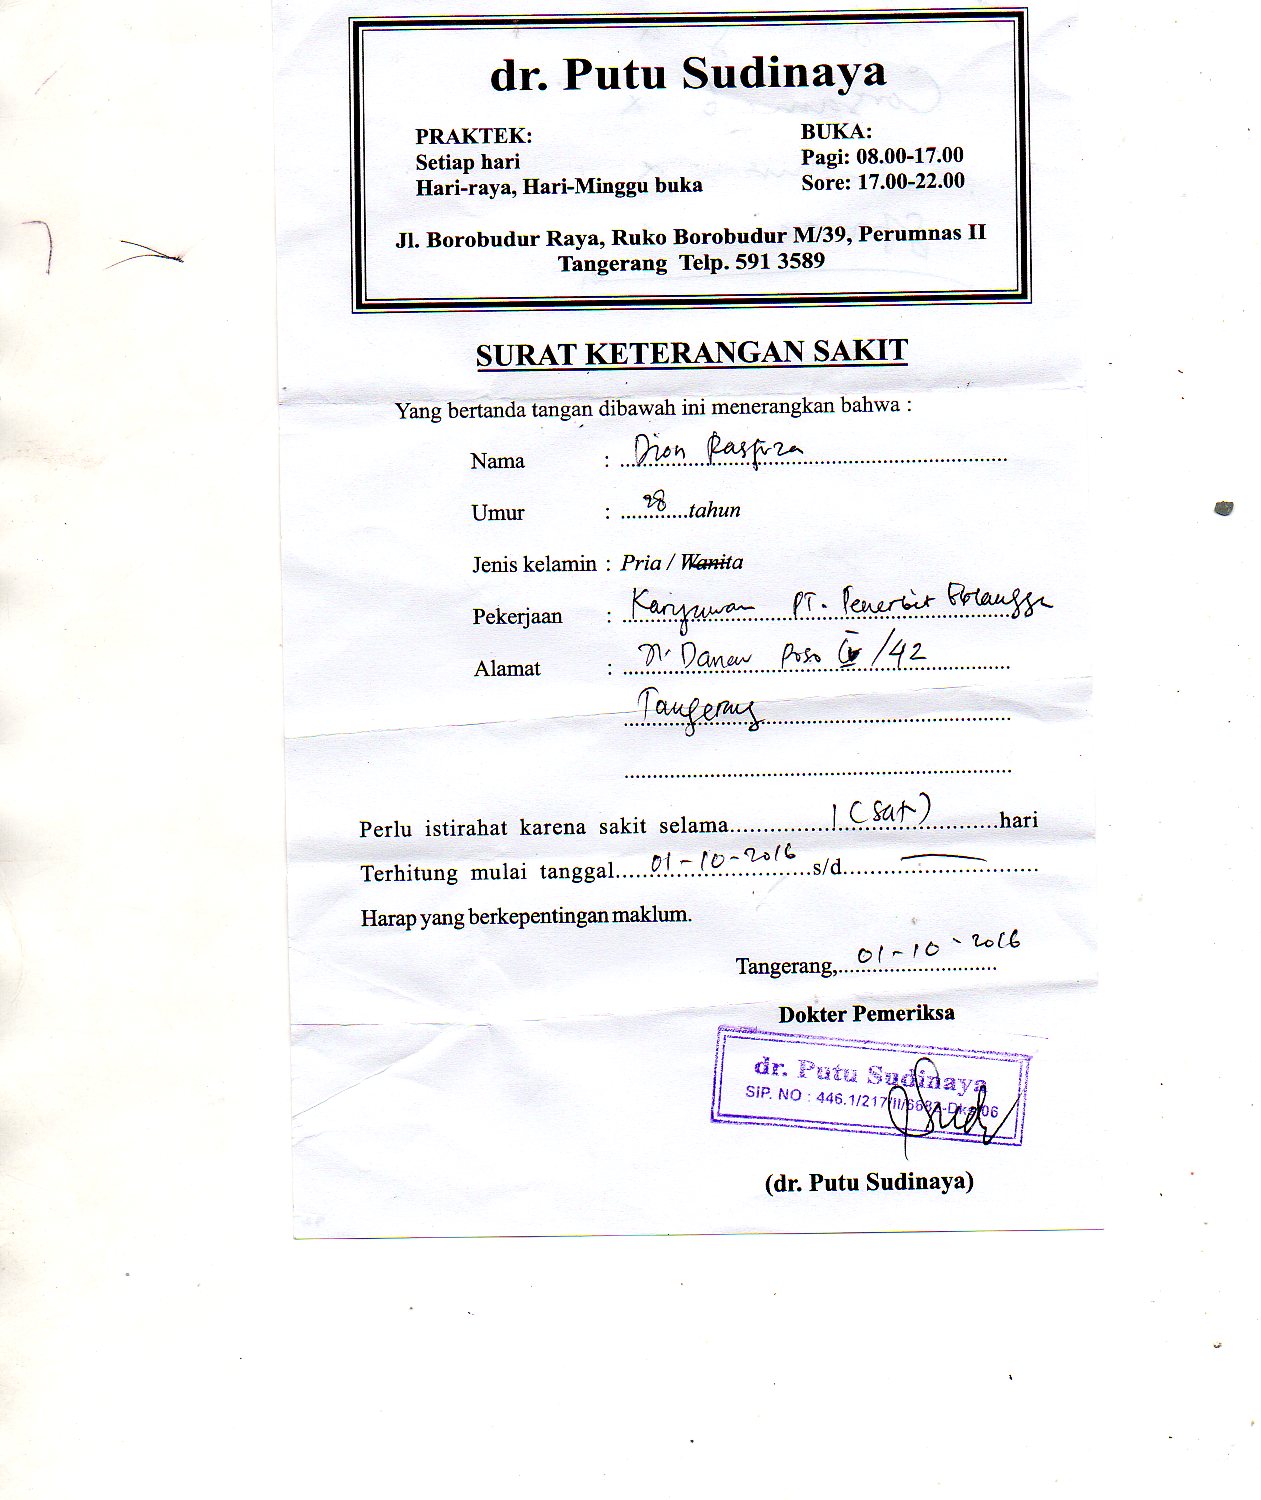 dr. Putu Sudinaya
PRAKTEK:
Setiap hari
Hari-raya, Hari-Minggu buka
BUKA:
Pagi: 08.00-17.00
Sore: 17.00-22.00
Jl. Borobudur Raya, Ruko Borobudur M/39, Perumnas II
Tangerang Telp. 591 3589
SURAT KETERANGAN SAKIT
Yang bertanda tangan dibawah ini menerangkan bahwa :
Nama : Dion
Umur : 28 tahun
Jenis kelamin : Pria / Wanita
Pekerjaan : Karyawan PT. Penerbit Erlangga
Alamat : Danau Poso /42
Tangerang
Perlu istirahat karena sakit selama 1 (Satu) hari
Terhitung mulai tanggal 01-10-2016 s/d —
Harap yang berkepentingan maklum.
Tangerang, 01-10-2016
Dokter Pemeriksa
dr. Putu Sudinaya
SIP. NO : 446.1/217/II/
(dr. Putu Sudinaya)